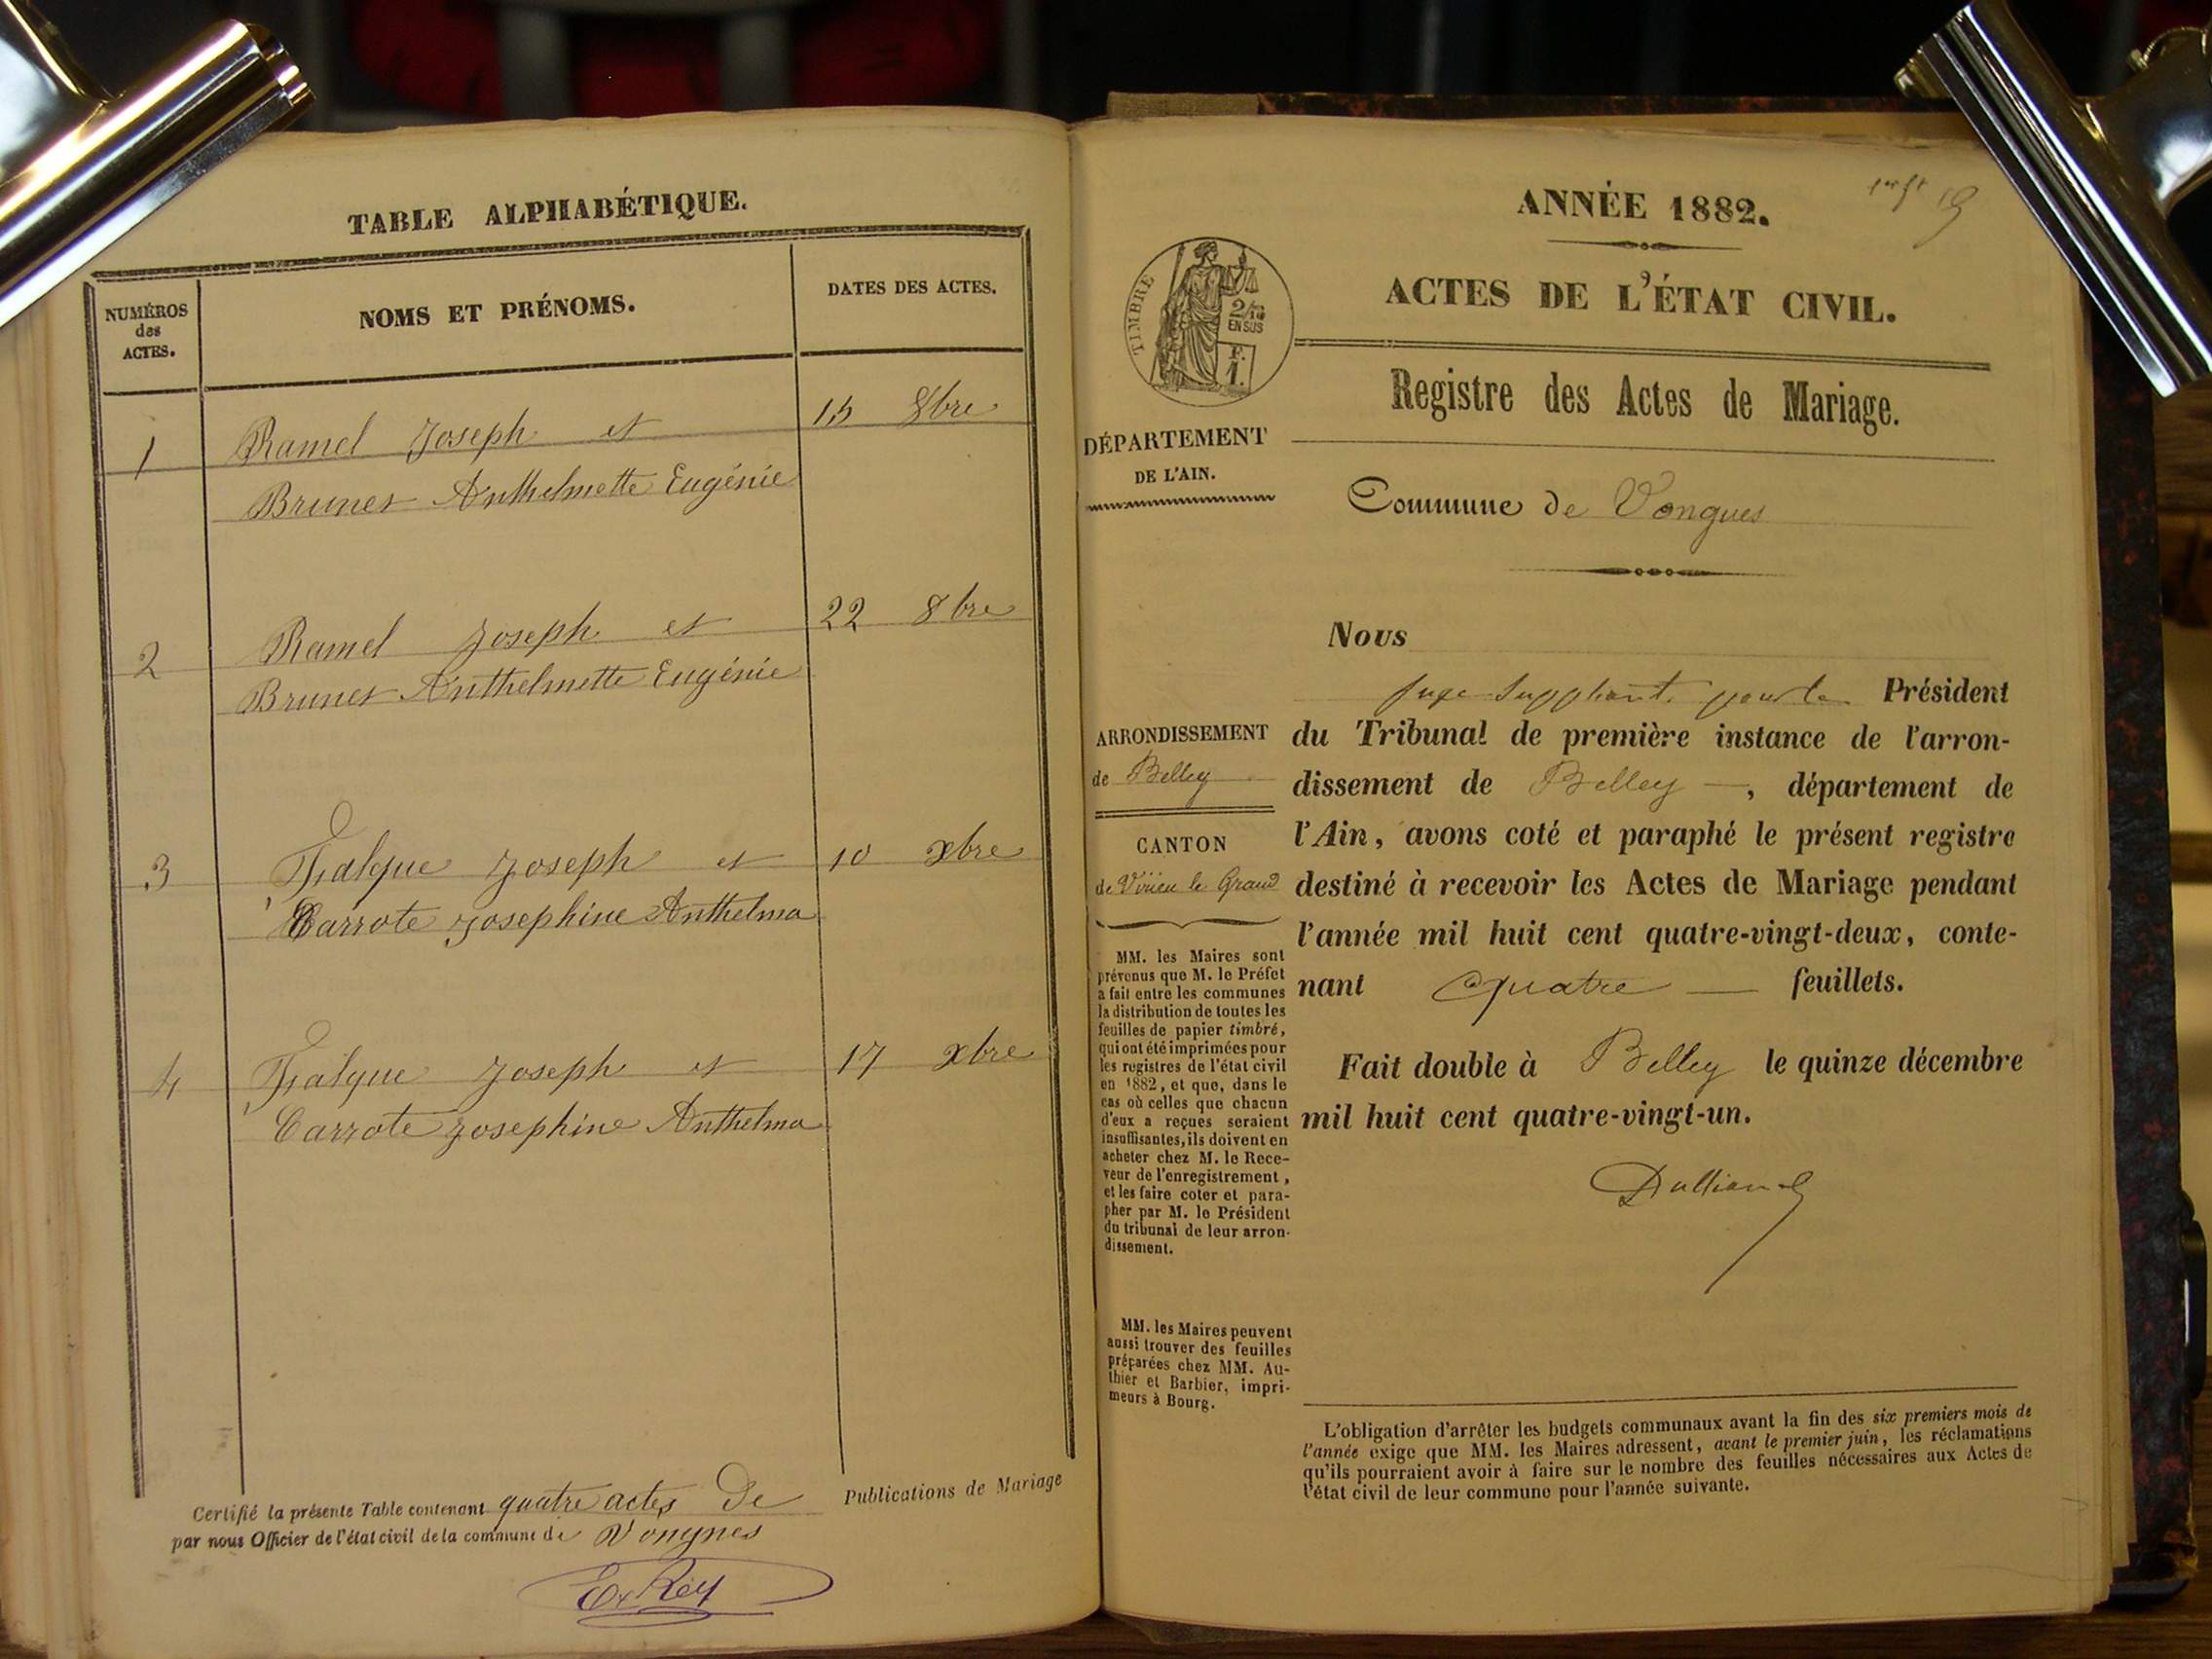 TABLE ALPHABÉTIQUE.
NUMÉROS
des
ACTES.
NOMS ET PRÉNOMS.
DATES DES ACTES.
1 Ramel Joseph et 15 8bre
Brunet Anthelmette Eugénie
2 Ramel Joseph et 22 8bre
Brunet Anthelmette Eugénie
3 Falque Joseph et 10 xbre
Carrote Josephine Anthelma
4 Falque Joseph et 17 xbre
Carrote Josephine Anthelma
Certifié la présente Table contenant quatre actes De Publications de Mariage
par nous Officier de l'état civil de la commune de Vongnes
Rey
19
ANNÉE 1882.
ACTES DE L'ÉTAT CIVIL.
TIMBRE
2/10
EN SUS
F.
1.
Registre des Actes de Mariage.
DÉPARTEMENT
DE L'AIN.
Commune de Vongnes
Nous
juge suppléant pour le Président
du Tribunal de première instance de l'arron-
dissement de Belley —, département de
l'Ain, avons coté et paraphé le présent registre
destiné à recevoir les Actes de Mariage pendant
l'année mil huit cent quatre-vingt-deux, conte-
nant quatre — feuillets.
Fait double à Belley le quinze décembre
mil huit cent quatre-vingt-un.
ARRONDISSEMENT
de Belley
CANTON
de Virieu le Grand
MM. les Maires sont
prévenus que M. le Préfet
a fait entre les communes
la distribution de toutes les
feuilles de papier timbré,
qui ont été imprimées pour
les registres de l'état civil
en 1882, et que, dans le
cas où celles que chacun
d'eux a reçues seraient
insuffisantes, ils doivent en
acheter chez M. le Rece-
veur de l'enregistrement,
et les faire coter et para-
pher par M. le Président
du tribunal de leur arron-
dissement.
MM. les Maires peuvent
aussi trouver des feuilles
préparées chez MM. Au-
thier et Barbier, impri-
meurs à Bourg.
L'obligation d'arrêter les budgets communaux avant la fin des six premiers mois de
l'année exige que MM. les Maires adressent, avant le premier juin, les réclamations
qu'ils pourraient avoir à faire sur le nombre des feuilles nécessaires aux Actes de
l'état civil de leur commune pour l'année suivante.